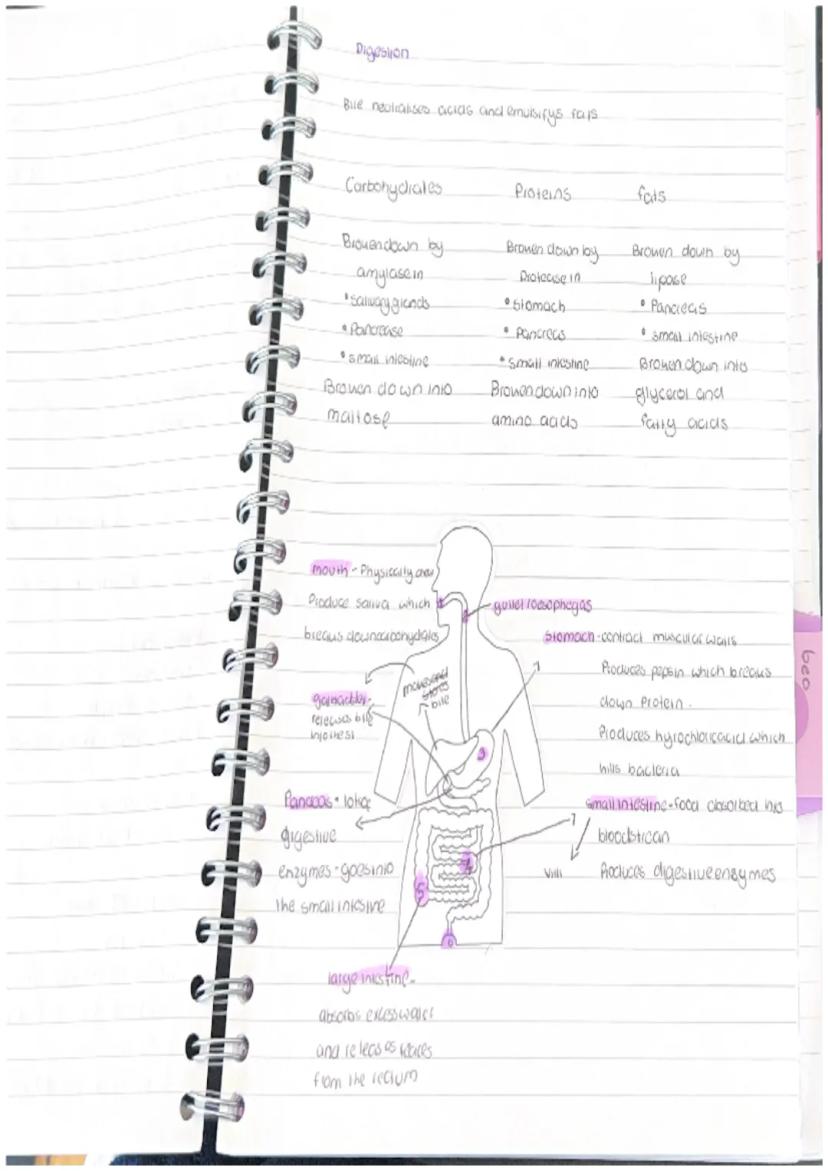 Digestion
Bile neutralises acids and emulsifys fats
Carbohydrates
Proteins
fats
Broken down by
amylase in
• Salivary glands
• Pancrease
• small intestine
Broken down into
maltose
Broken down by
Protease in
• Stomach
• Pancreas
• Small intestine
Broken down into
amino acids
Broken down by
lipase
• Pancreas
• small intestine
Broken down into
glycerol and
fatty acids
mouth - Physically
Produce saliva which
breaks down carbohydrates
gullet/oesophagas
Stomach - contract muscular walls
Produces pepsin which breaks
down Protein.
Produces hyrochloric acid which
kills bacteria
makes and
stores
bile
releases bile
3
Pancreas -
digestive
enzymes - goes into
the small intestine
small intestine - food absorbed into
bloodstream
Villi
Produces digestive enzymes
4
5
6
large intestine -
absorbs excess water
and releas as feaces
from the rectum
Geo